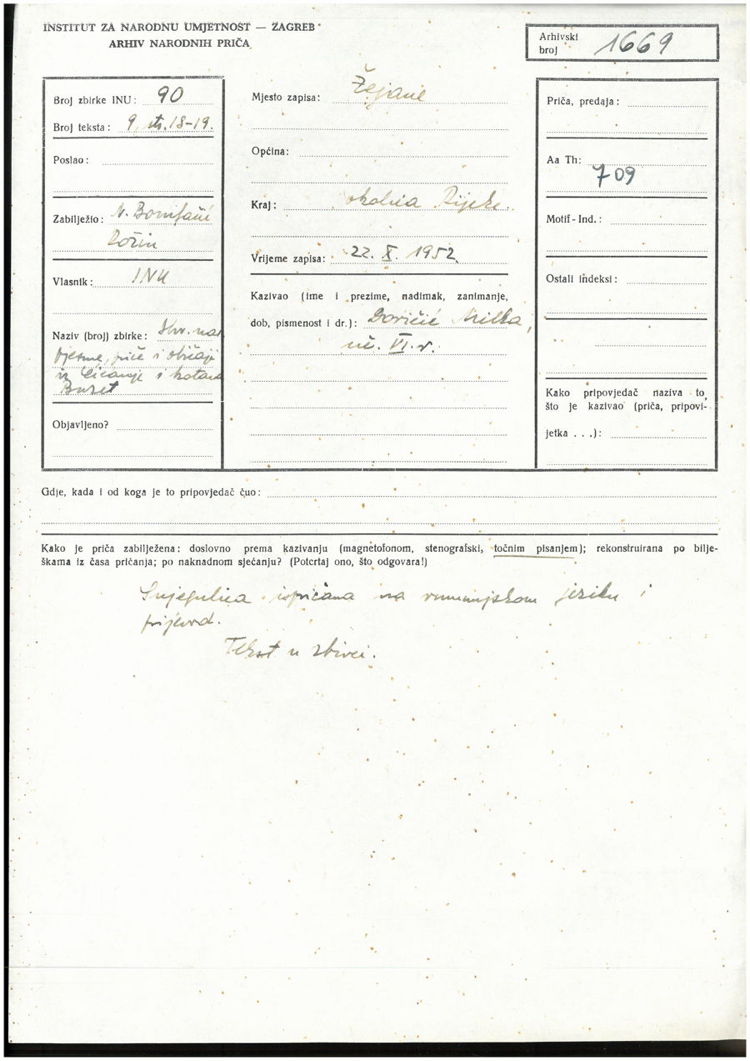 INSTITUT ZA NARODNU UMJETNOST — ZAGREB
ARHIV NARODNIH PRIČA
Arhivski
broj 1669
Broj zbirke INU: 90
Broj teksta: 9, str. 18-19.
Poslao:
Zabilježio: N. Bonifačić
Rožin
Vlasnik: INU
Naziv (broj) zbirke: Hrv. nar.
pjesme, priče i običaji
iz Ćićarije i kotara
Buzet
Objavljeno?
Mjesto zapisa: Žejane
Općina:
Kraj: okolica Rijeke.
Vrijeme zapisa: 22. X. 1952
Kazivao (ime i prezime, nadimak, zanimanje,
dob, pismenost i dr.): Doričić Milka,
uč. VI. r.
Priča, predaja:
Aa Th:
709
Motif-Ind.:
Ostali indeksi:
Kako pripovjedač naziva to
što je kazivao (priča, pripovi-
jetka . . .):
Gdje, kada i od koga je to pripovjedač čuo:
Kako je priča zabilježena: doslovno prema kazivanju (magnetofonom, stenografski, točnim pisanjem); rekonstruirana po bilje-
škama iz časa pričanja; po naknadnom sjećanju? (Potcrtaj ono, što odgovara!)
Snjegulica ispričana na rumunjskom jeziku i
prijevod.
Tekst u zbirci.